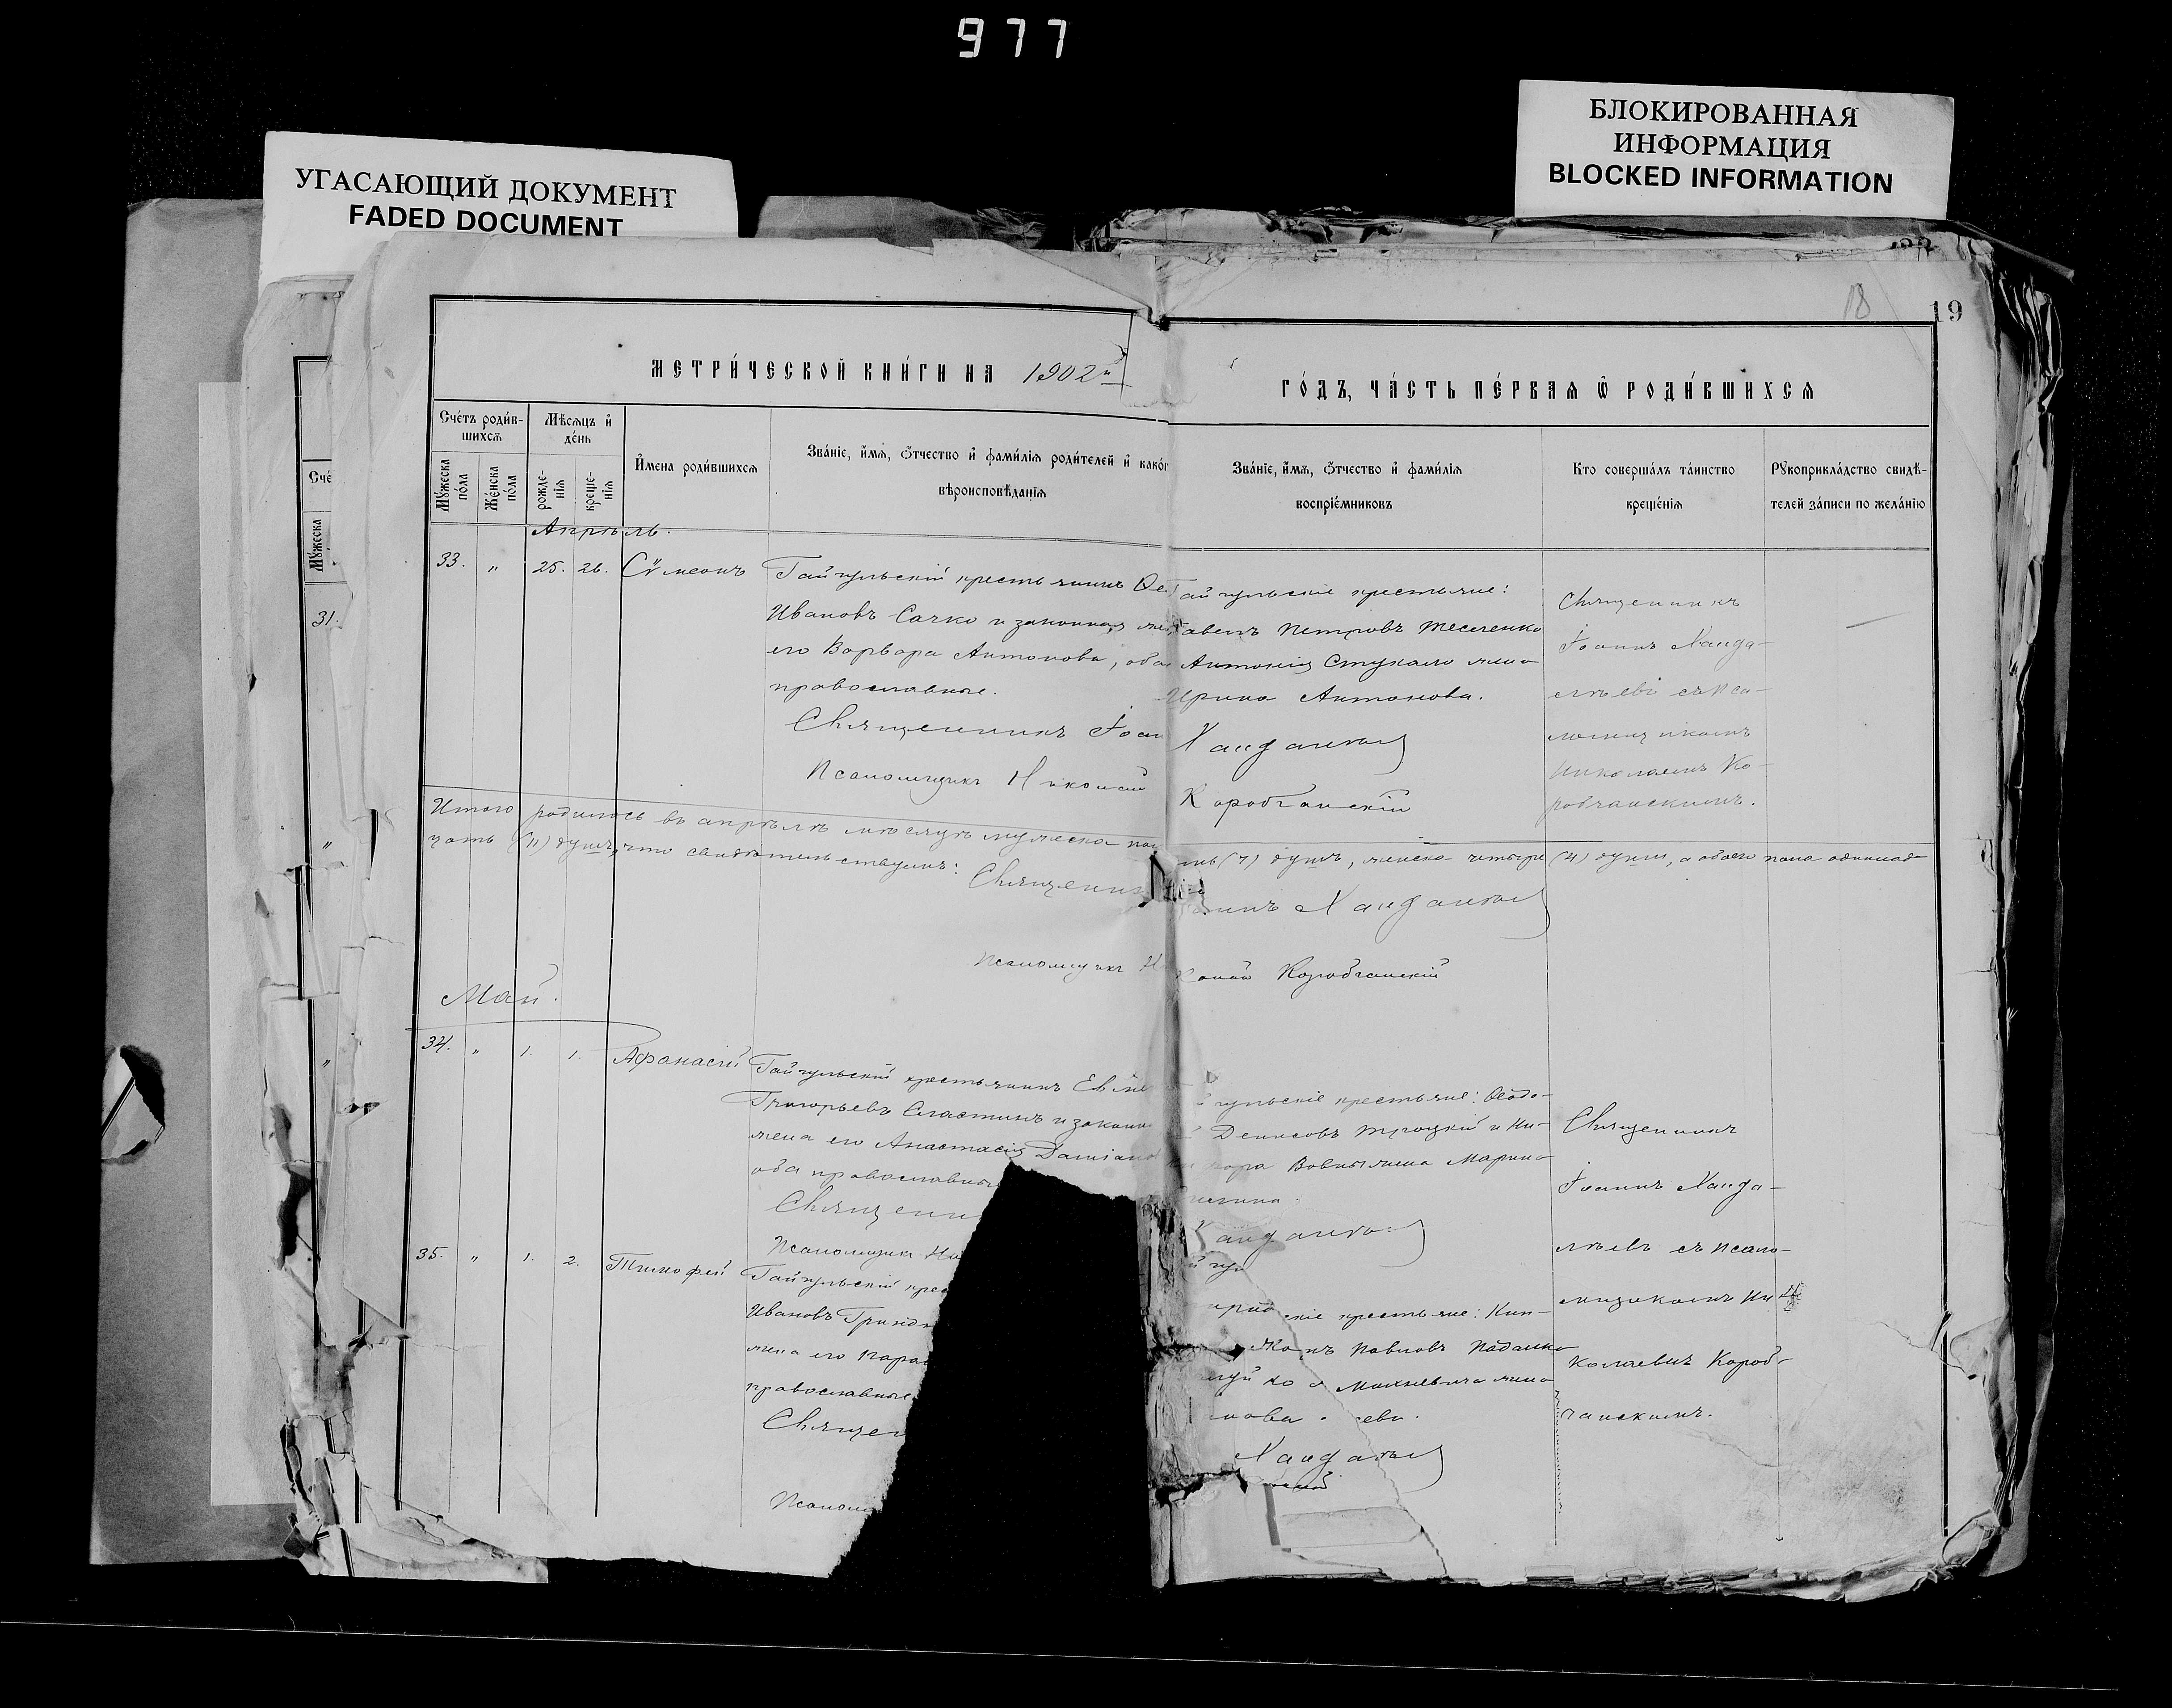 977
УГАСАЮЩИЙ ДОКУМЕНТ
FADED DOCUMENT
БЛОКИРОВАННАЯ
ИНФОРМАЦИЯ
BLOCKED INFORMATION
18
19
МЕТРИ́ЧЕСКОЙ КНИ́ГИ НА 1902й
ГО́ДЪ, ЧА́СТЬ ПЕ́РВАѦ Ѿ РОДИ́ВШИХСѦ
Сче́тъ роди́в-
шихсѧ
Мꙋ́жеска по́ла
Же́нска по́ла
Мѣ́сѧцъ и҆ де́нь
рожде-нїѧ
креще-нїѧ
И҆мена роди́вшихсѧ
Зва́нїе, и҆́мѧ, ѻ҆́тчество и҆ фами́лїѧ роди́телей и҆ како́г
вѣроисповѣ́данїѧ
Зва́нїе, и҆́мѧ, ѻ҆́тчество и҆ фами́лїѧ
воспрїе́мниковъ
Кто соверша́лъ та́инство
креще́нїѧ
Рꙋкоприкла́дство свидѣ́-
телей за́писи по жела́нїю
Счє
Мꙋжеска
31.
Апрѣль.
33. " 25. 26. Сѵмеонъ
Гайчульскій крестьянинъ Ѳе
Ивановъ Сачко и законная же
его Варвара Антонова, оба
православные.
Священникъ Іоан
Псаломщикъ Николай
айчульскіе крестьяне:
авелъ Петровъ
Антонія Стукало жена
Ирина Антонова.
Хандалѣев
Коробчанскій
Священникъ
Іоаннъ Ханда-
лѣевъ съ Пса-
ломщикомъ
Николаемъ Ко-
робчанскимъ.
Итого родилось въ апрѣлѣ мѣсяцѣ мужеска пол
мь (7) душъ, женска четыре (4) души, а обоего пола одиннад-
цать (11) душъ, что свидѣтельствуемъ: Священник
Іоаннъ Хандалѣев
Псаломщикъ Н
колай Коробчанскій
Май.
34. " 1. 1. Афанасій
Гайчульскій крестьянинъ Евѳ
Григорьевъ Сластинъ и законн
жена его Анастасія Даміано
оба православные
Священни
Псаломщик Ни
чульскіе крестьяне: Ѳеодо-
Денисовъ Троцкій и Ни-
жена Марина
Хандалѣ
Священникъ
Іоаннъ Ханда-
лѣевъ съ Псало-
мщикомъ Ни-
колаемъ Короб-
чанскимъ.
35. " 1. 2. Тимофей
Гайчульскій крес
Ивановъ
жена его Парас
православные
Священ
Псалом
скіе крестьяне:
Павловъ
жена
Хандалѣев